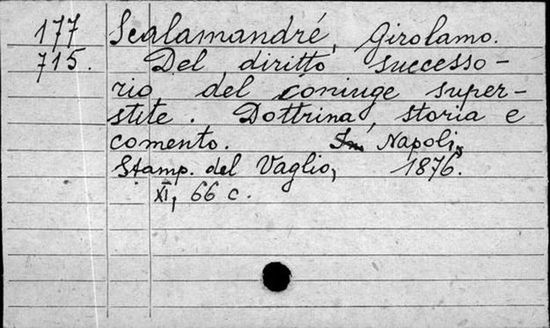 177 Scalamandré, Girolamo.
715. Del diritto successo-
rio del coniuge super-
stite. Dottrina, storia e
comento. In Napoli,
Stamp. del Vaglio, 1876.
XI, 66 c.